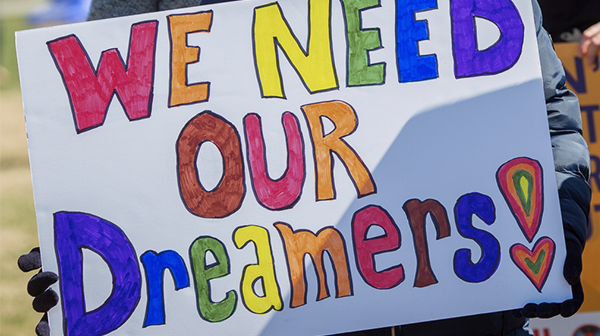 We NeeD
OUR
Dreamers!